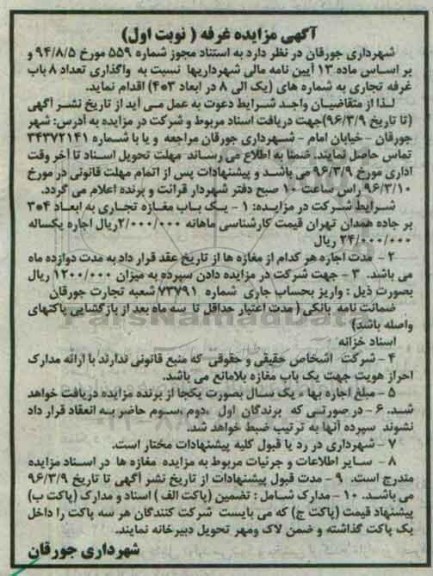 آگهی مزایده غرفه ( نوبت اول)
شهرداری جورقان در نظر دارد به استناد مجوز شماره ۵۵۹ مورخ ۹۴/۸/۵ و
بر اساس ماده ۱۳ آیین نامه مالی شهرداریها نسبت به واگذاری تعداد ۸ باب
غرفه تجاری به شماره های (یک الی ۸ در ابعاد ۳*۴) اقدام نماید.
لذا از متقاضیان واجد شرایط دعوت به عمل می آید از تاریخ نشر آگهی
(تا تاریخ ۹۶/۳/۹)جهت دریافت اسناد مربوط و شرکت در مزایده به آدرس: شهر
جورقان - خیابان امام - شهرداری جورقان مراجعه و یا با شماره ۳۴۳۷۲۱۴۱
تماس حاصل نمایند. ضمنا به اطلاع می رساند مهلت تحویل اسناد تا آخر وقت
اداری مورخ ۹۶/۳/۹ می باشد و پیشنهادات پس از اتمام مهلت قانونی در مورخ
۹۶/۳/۱۰ راس ساعت ۱۰ صبح دفتر شهردار قرائت و برنده اعلام می گردد.
شرایط شرکت در مزایده: ۱ - یک باب مغازه تجاری به ابعاد ۴*۳
بر جاده همدان تهران قیمت کارشناسی ماهانه ۲/۰۰۰/۰۰۰ریال اجاره یکساله
۲۴/۰۰۰/۰۰۰ ریال
۲ - مدت اجاره هر کدام از مغازه ها از تاریخ عقد قرار داد به مدت دوازده ماه
می باشد. ۳ - جهت شرکت در مزایده دادن سپرده به میزان ۱۲۰۰/۰۰۰ ریال
بصورت ذیل : واریز بحساب جاری شماره ۷۳۷۹۱ شعبه تجارت جورقان
ضمانت نامه بانکی ( مدت اعتبار حداقل تا سه ماه بعد از بازگشایی پاکتهای
واصله باشد)
اسناد خزانه
۴ - شرکت اشخاص حقیقی و حقوقی که منبع قانونی ندارند با ارائه مدارک
احراز هویت جهت یک باب مغازه بلامانع می باشد.
۵ - مبلغ اجاره بها ء یک سال بصورت یکجا از برنده مزایده دریافت خواهد
شد. ۶ - در صورتی که برندگان اول ،دوم ،سوم حاضر به انعقاد قرار داد
نشوند سپرده آنها به ترتیب ضبط خواهد شد.
۷ - شهرداری در رد یا قبول کلیه پیشنهادات مختار است.
۸ - سایر اطلاعات و جزئیات مربوط به مزایده مغازه ها در اسناد مزایده
مندرج است. ۹ - مدت قبول پیشنهادات از تاریخ نشر آگهی تا تاریخ ۹۶/۳/۹
می باشد. ۱۰ - مدارک شامل : تضمین (پاکت الف ) اسناد و مدارک (پاکت ب)
پیشنهاد قیمت (پاکت ج) که می بایست شرکت کنندگان هر سه پاکت را داخل
یک پاکت گذاشته و ضمن لاک ومهر تحویل دبیرخانه نمایند.
شهرداری جورقان